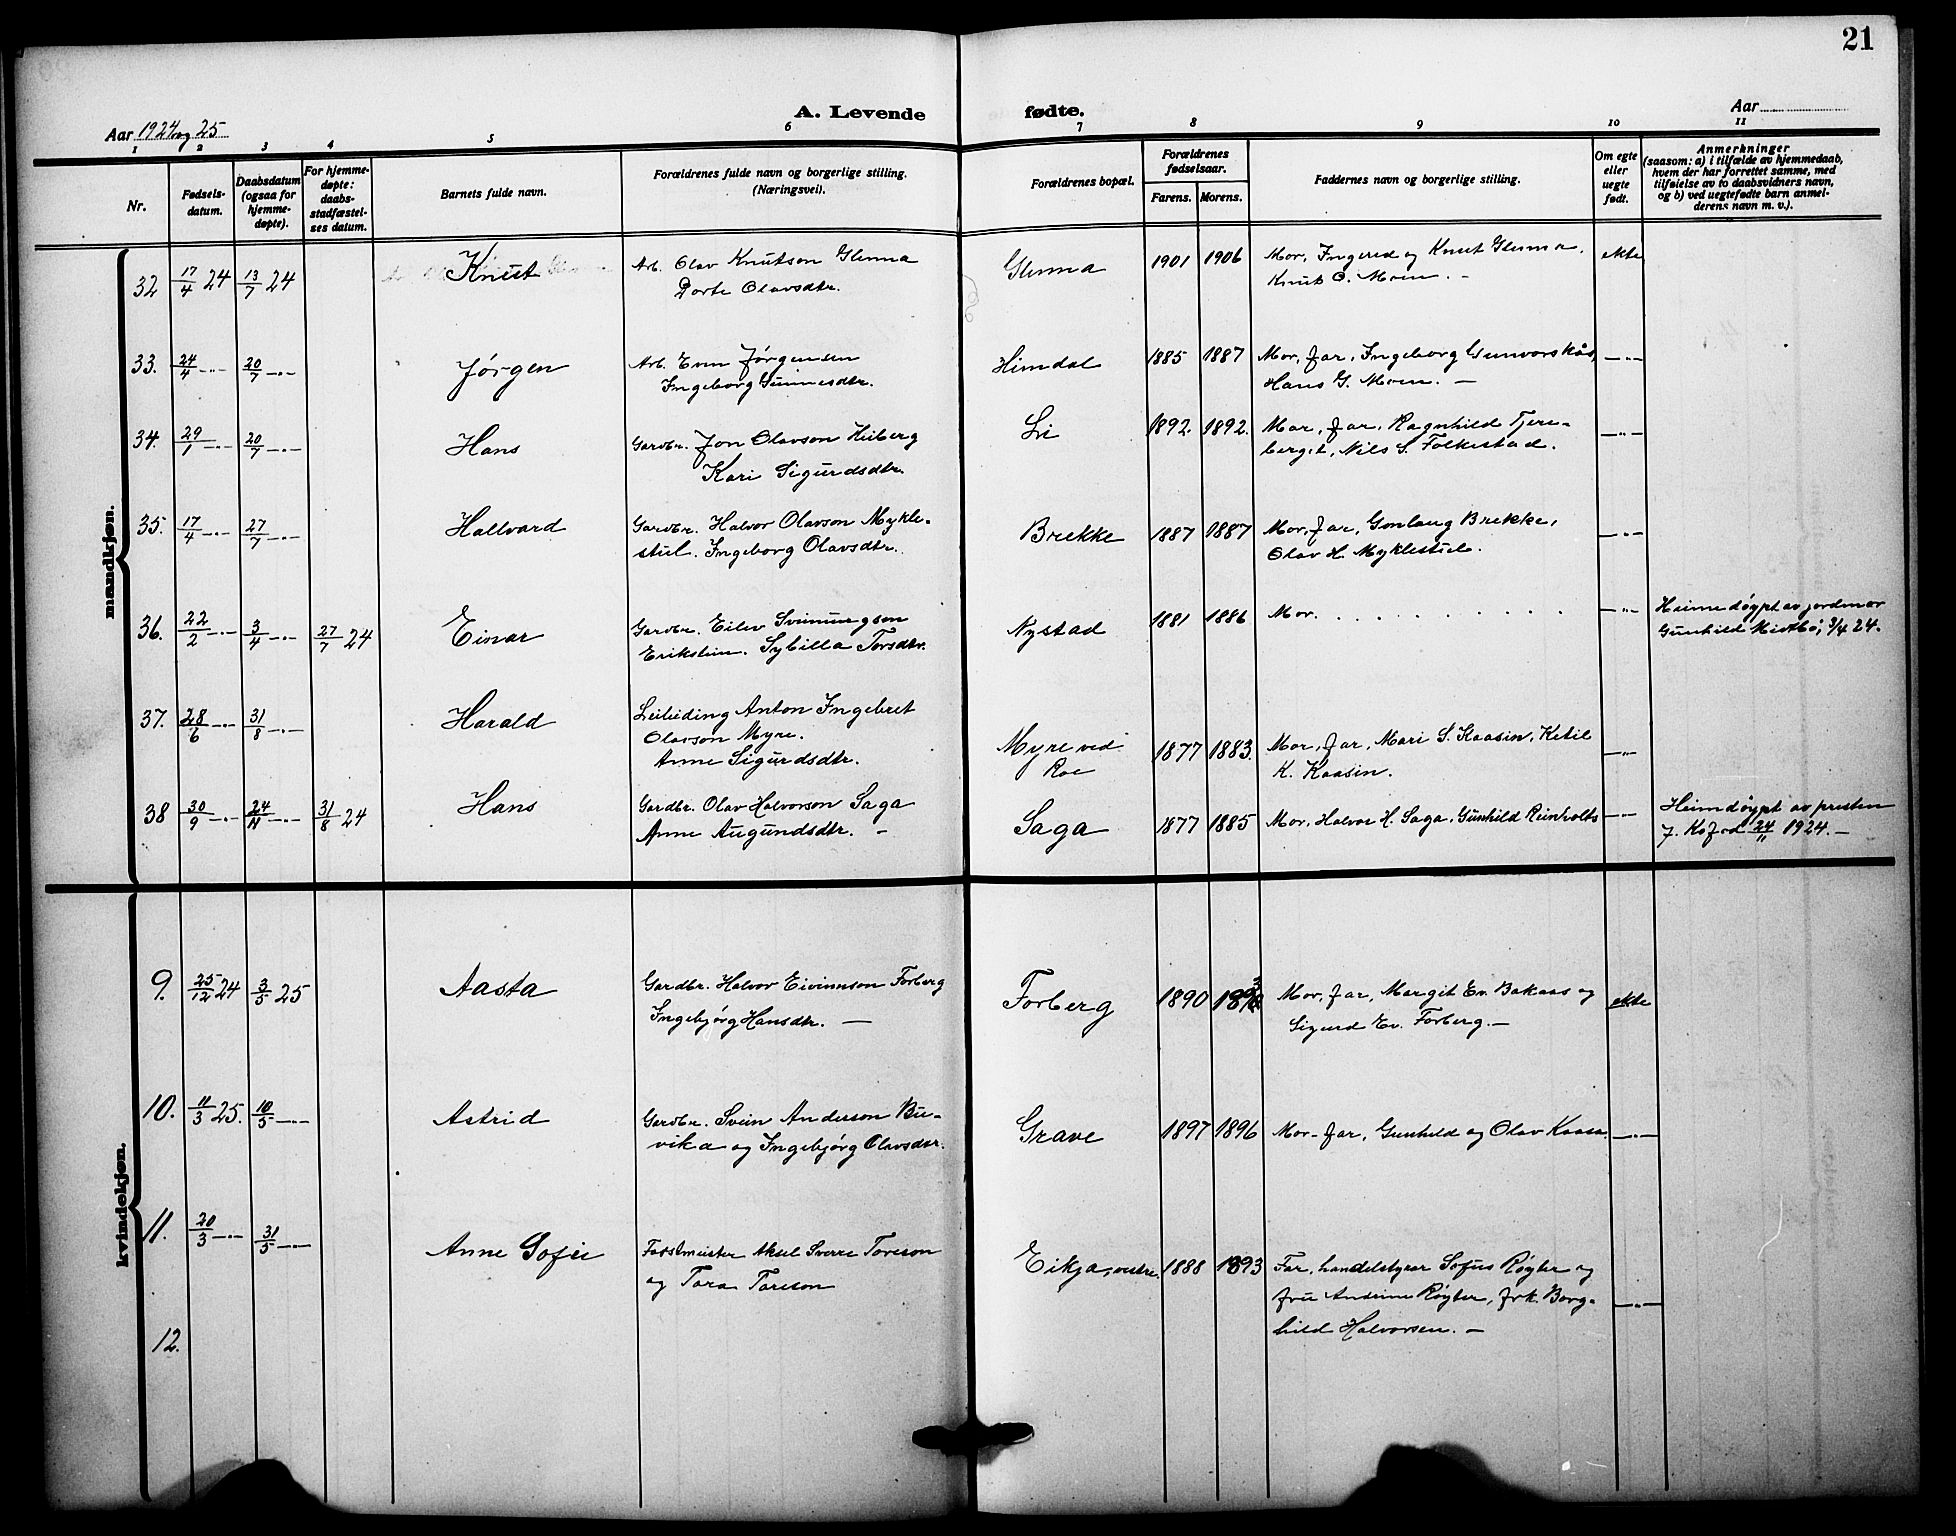 21
A. Levende fødte.
Aar 1924 og 25
Aar
1 2 3 4 5 6 7 8 9 10 11
Nr.
Fødsels-
datum.
Daabsdatum
(ogsaa for
hjemme-
døpte).
For hjemme-
døpte:
daabs-
stadfæstel-
ses datum.
Barnets fulde navn.
Forældrenes fulde navn og borgerlige stilling.
(Næringsvei).
Forældrenes bopæl.
Forældrenes
fødselsaar.
Farens. Morens.
Faddernes navn og borgerlige stilling.
Om egte
eller
uegte
født.
Anmerkninger
(saasom: a) i tilfælde av hjemmedaab,
hvem der har forrettet samme, med
tilføielse av to daabsvidners navn,
og b) ved uegtefødte barn anmel-
derens navn m. v.).
mandkjøn.
32 17/4 24 13/7 24 Knut Arb. Olav Knutson Glenna Glenna 1901 1906 Mor, Ingered og Knut Glenna, ekte
Dorte Olavsdtr. Knut O. Moen. -
33. 24/4 -"- 20/7 -"- Jørgen Arb. Even Jørgensen Himdal 1885 1887 Mor, far, Ingeborg Gunvorskås, -"-
Ingeborg Gunnesdtr. Hans G. Moen. -
34. 29/1 -"- 20/7 -"- Hans Gardbr. Jon Olavson Heiberg Li 1892. 1892. Mor, far, Ragnhild Tjere- -"-
Kari Sigurdsdtr. berget, Nils S. Folkestad.
35. 17/4 -"- 27/7 -"- Hallvard Gardbr. Halvor Olavson Mykle- Brekke 1887 1887 Mor, far, Gonlaug Brekke, -"-
stul. Ingeborg Olavsdtr. Olav H. Myklestul.
36. 22/2 -"- 3/4 -"- 27/7 24 Einar Gardbr. Eilev Sveinungson Nystad 1881 1886 Mor. . . . . . . . . . . . -"- Heimedøypt av jordmor
Erikstein. Sybilla Torsdtr. Gunhild Midtbø, 3/4 24.
37. 28/6 -"- 31/8 -"- Harald Leilending Anton Ingebret
Olavson Myre. Myre ved 1877 1883. Mor, far, Mari S. Kaasin, Ketil -"-
Anne Sigurdsdtr. Roe K. Kaasin.
38 30/9 -"- 24/11 -"- 31/8 24 Hans Gardbr. Olav Halvorson Saga Saga 1877 1885 Mor, Halvor H. Saga, Gunhild Reinholts -"- Heimdøypt av presten
Anne Augundsdtr. - J. Kofod 24/11 1924. -
kvindekjøn.
9. 25/12 24 3/5 25 Aasta Gardbr. Halvor Eivinnson Forberg Forberg 1890 1893 Mor, far, Margit Ev. Bakaas og ekte
Ingebjørg Hansdtr. - Sigurd Ev. Forberg. -
10. 11/3 25. 10/5 -"- Astrid Gardbr. Svein Anderson Bu- Grave 1897 1896 Mor - far, Gunhild og Olav Kaasa. -"-
vika og Ingebjørg Olavsdtr.
11. 20/3 -"- 31/5 -"- Anne Sofie Fosstmeister Aksel Sverre Toreson Eikja, vestre. 1888 1893 Far, handelstyrar Sofus Røyter og -"-
og Tora Toreson fru Andrine Røyter, frk. Borg-
hild Halvorsen. -
12.